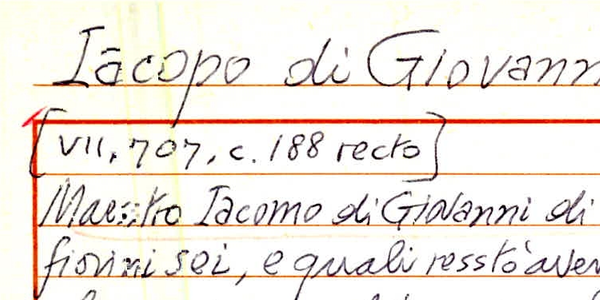 Iacopo di Giovann
[VII, 707, c. 188 recto]
Maestro Iacomo di Giovanni di
fiorini sei, e quali resstò aver